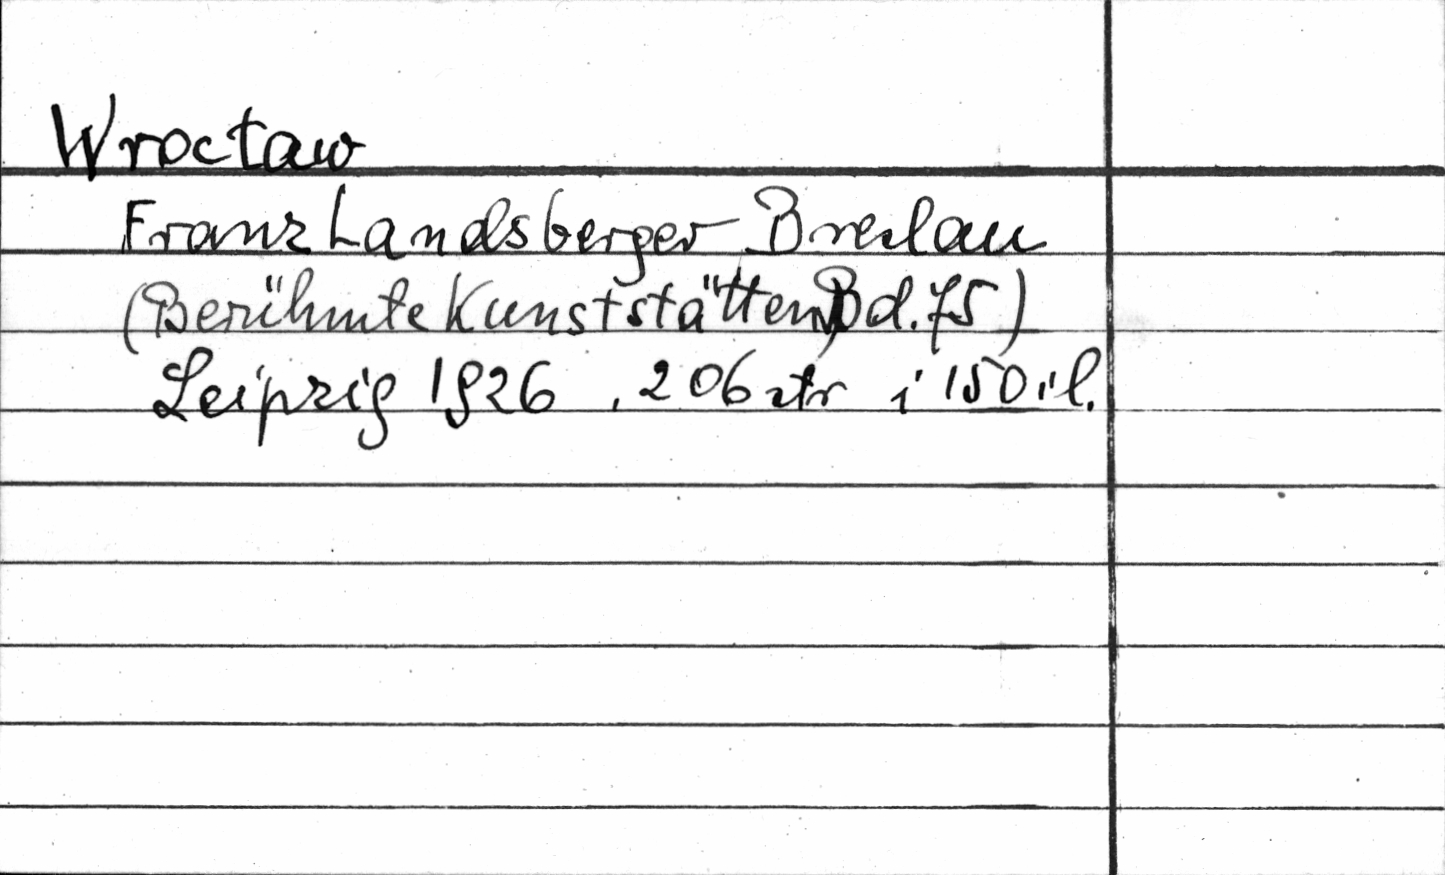 Wrocław
Franz Landsberger Breslau
(Berühmte Kunststätten, Bd. 75)
Leipzig 1926, 206 str i 150 il.